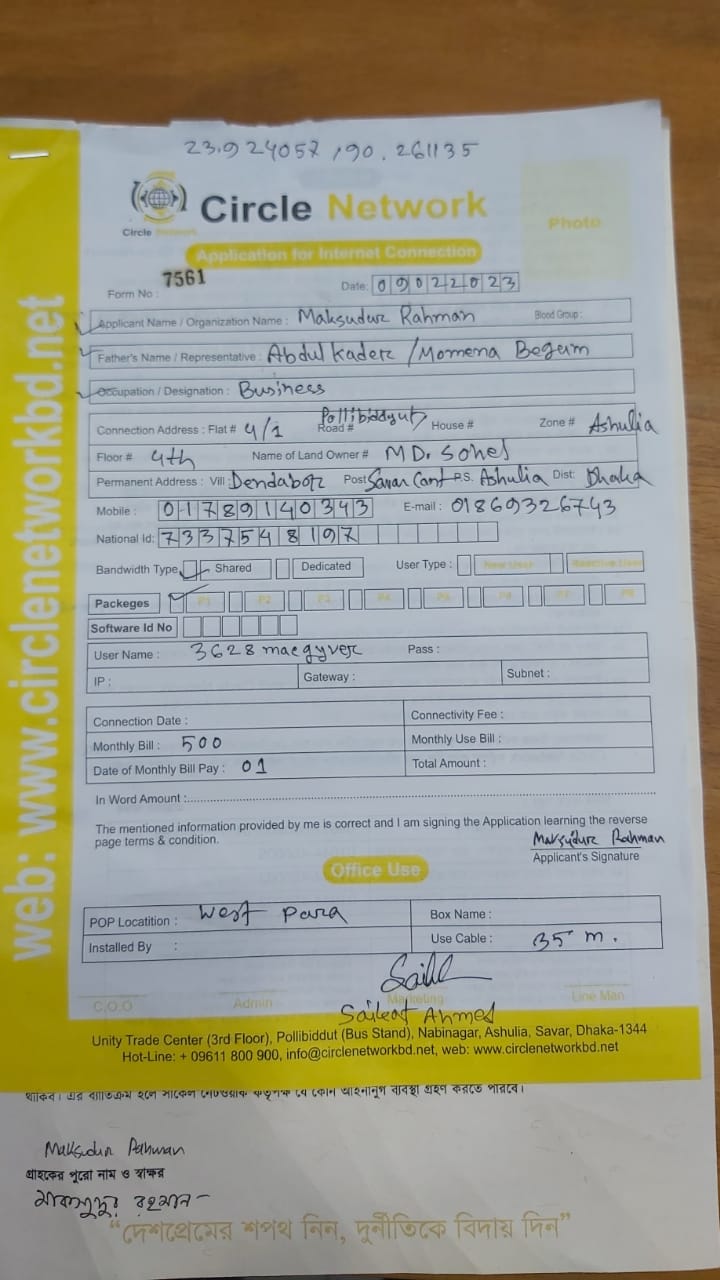 23.924057, 90.261135
Circle Network
Circle Network
Photo
Application for Internet Connection
Form No : 7561
Date: 09022023
Applicant Name / Organization Name : Maksudur Rahman Blood Group :
Father's Name / Representative : Abdul Kader / Momena Begum
Occupation / Designation : Business
Connection Address : Flat # 4/1 Road# Pollibiddyut House # Zone # Ashulia
Floor # 4th Name of Land Owner # MD. Sohel
Permanent Address : Vill: Dendabor Post Savar Cant P.S. Ashulia Dist: Dhaka
Mobile : 01789140343 E-mail : 01869326743
National Id: 7337548197
Bandwidth Type Shared Dedicated User Type : New User Reactive User
Packeges P1 P2 P3 P4 P5 P6 P7 P8
Software Id No
User Name : 3628 macgyver Pass :
IP : Gateway : Subnet :
Connection Date : Connectivity Fee :
Monthly Bill : 500 Monthly Use Bill :
Date of Monthly Bill Pay : 01 Total Amount :
In Word Amount :
The mentioned information provided by me is correct and I am signing the Application learning the reverse
page terms & condition.
Maksudur Rahman
Applicant's Signature
Office Use
POP Locatition : West Para Box Name :
Installed By : Use Cable : 35 m.
C.O.O Admin Marketing Line Man
Ahmed
Unity Trade Center (3rd Floor), Pollibiddut (Bus Stand), Nabinagar, Ashulia, Savar, Dhaka-1344
Hot-Line: + 09611 800 900, info@circlenetworkbd.net, web: www.circlenetworkbd.net
web: www.circlenetworkbd.net
থাকিব। এর ব্যতিক্রম হলে সার্কেল নেটওয়ার্ক কতৃপক্ষ যে কোন আইনানুগ ব্যবস্থা গ্রহণ করতে পারবে।
Maksudur Rahman
গ্রাহকের পুরো নাম ও স্বাক্ষর
মাকসুদুর রহমান
“দেশপ্রেমের শপথ নিন, দুর্নীতিকে বিদায় দিন”